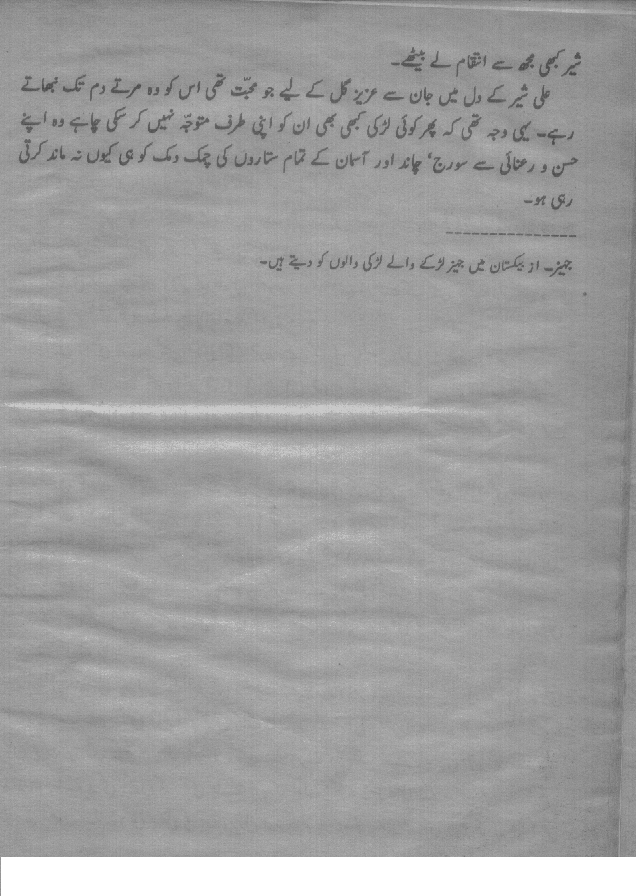 شیر کبھی مجھ سے انتقام لے بیٹھے۔
علی شیر کے دل میں جان سے عزیز گل کے لیے جو محبّت تھی اس کو وہ مرتے دم تک نبھاتے
رہے۔ یہی وجہ تھی کہ پھر کوئی لڑکی کبھی بھی ان کو اپنی طرف متوجّہ نہیں کر سکی چاہے وہ اپنے
حسن و رعنائی سے سورج، چاند اور آسمان کے تمام ستاروں کی چمک دمک کو ہی کیوں نہ ماند کرتی
رہی ہو۔
---------------
جہیز۔ از بیکستان میں جہیز لڑکے والے لڑکی والوں کو دیتے ہیں۔